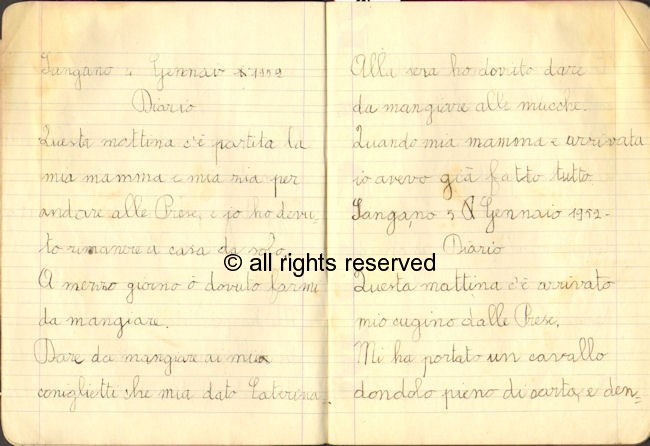 Sangano 4 Gennaio 1952
Diario
Questa mattina s'è partita la
mia mamma e mia zia per
andare alle Prese, e io ho dovu-
to rimanere a casa da solo.
A mezzo giorno ò dovuto farmi
da mangiare.
Dare da mangiare ai miei
coniglietti che mia dato Caterina.
Alla sera ho dovuto dare
da mangiare alle mucche.
Quando mia mamma e arrivata
io avevo già fatto tutto.
Sangano 5 Gennaio 1952-
Diario
Questa mattina s'è arrivato
mio cugino dalle Prese,
Mi ha portato un cavallo
dondolo pieno di carta, e den-
© all rights reserved